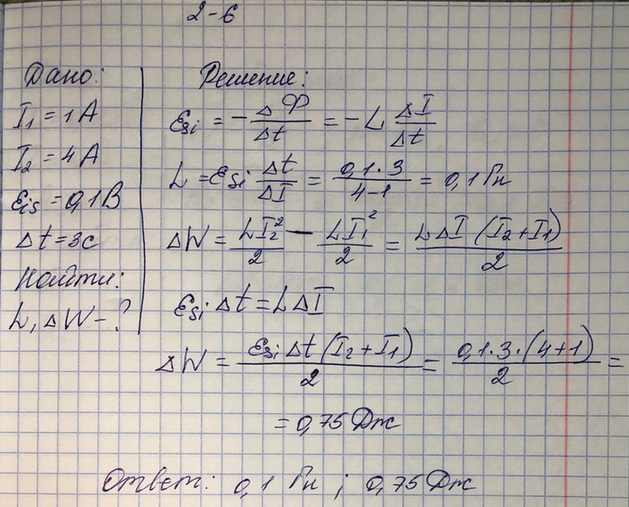 2-6
Дано:
I₁ = 1А
I₂ = 4А
Ɛis = 0,1В
Δt = 3с
Найти:
L, ΔW - ?
Решение:
Ɛsi = - ΔФ/Δt = - L ΔI/Δt
L = Ɛsi Δt/ΔI = 0,1·3/4-1 = 0,1 Гн
ΔW = LI₂²/2 - LI₁²/2 = LΔI (I₂+I₁)/2
Ɛsi Δt = LΔI
ΔW = Ɛsi Δt (I₂+I₁)/2 = 0,1·3·(4+1)/2 =
= 0,75 Дж
Ответ: 0,1 Гн ; 0,75 Дж